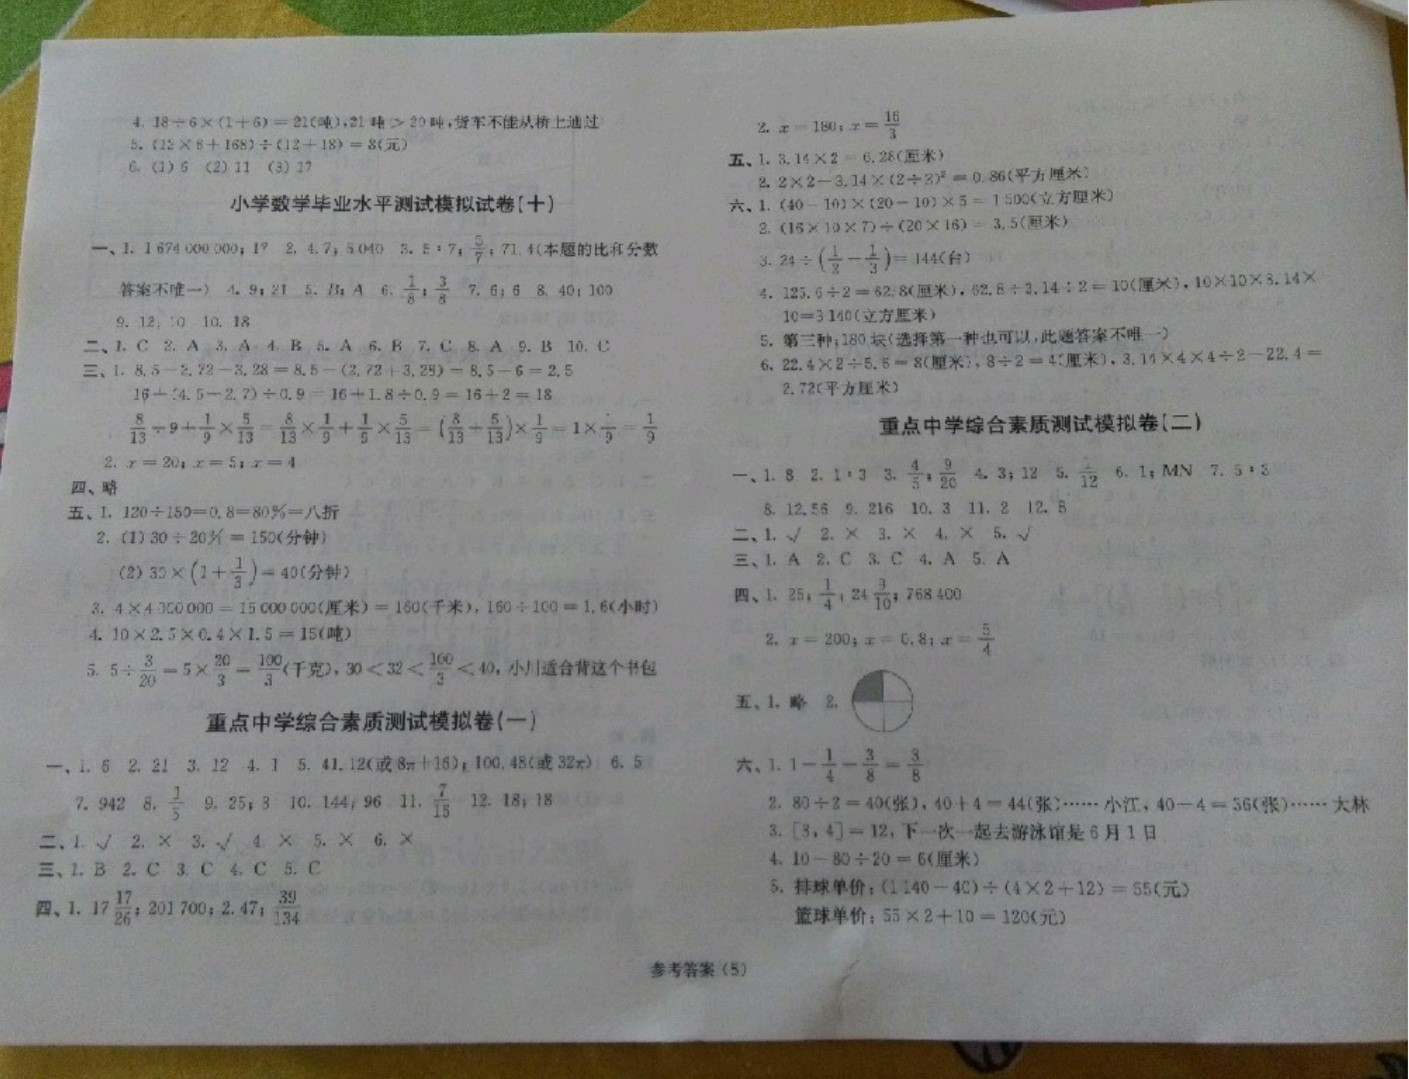 4. 18÷6×(1+6)=21(吨),21吨>20吨,货车不能从桥上通过
5. (12×8+168)÷(12+18)=8(元)
6. (1) 6 (2) 11 (3) 17
小学数学毕业水平测试模拟试卷(十)
一、1. 1 674 000 000; 17 2. 4.7; 5 040 3. 5∶7; 5/7; 71.4(本题的比和分数
答案不唯一) 4. 9; 21 5. B; A 6. 1/8; 3/8 7. 6; 6 8. 40; 100
9. 12; 10 10. 18
二、1. C 2. A 3. A 4. B 5. A 6. B 7. C 8. A 9. B 10. C
三、1. 8.5-2.72-3.28=8.5-(2.72+3.28)=8.5-6=2.5
16+(4.5-2.7)÷0.9=16+1.8÷0.9=16+2=18
8/13÷9+1/9×5/13=8/13×1/9+1/9×5/13=(8/13+5/13)×1/9=1×1/9=1/9
2. x=20; x=5; x=4
四、略
五、1. 120÷150=0.8=80%=八折
2. (1) 30÷20%=150(分钟)
(2) 30×(1+1/3)=40(分钟)
3. 4×4 000 000=16 000 000(厘米)=160(千米),160÷100=1.6(小时)
4. 10×2.5×0.4×1.5=15(吨)
5. 5÷3/20=5×20/3=100/3(千克),30<32<100/3<40,小川适合背这个书包
重点中学综合素质测试模拟卷(一)
一、1. 6 2. 21 3. 12 4. 1 5. 41.12(或8π+16); 100.48(或32π) 6. 5
7. 942 8. 1/5 9. 25; 3 10. 144; 96 11. 7/15 12. 18; 18
二、1. √ 2. × 3. √ 4. × 5. × 6. ×
三、1. B 2. C 3. C 4. C 5. C
四、1. 17 17/26; 201 700; 2.47; 39/134
2. x=180; x=16/3
五、1. 3.14×2=6.28(厘米)
2. 2×2-3.14×(2÷2)²=0.86(平方厘米)
六、1. (40-10)×(20-10)×5=1 500(立方厘米)
2. (16×10×7)÷(20×16)=3.5(厘米)
3. 24÷(1/2-1/3)=144(台)
4. 125.6÷2=62.8(厘米),62.8÷3.14÷2=10(厘米),10×10×3.14×
10=3 140(立方厘米)
5. 第三种;180块(选择第一种也可以,此题答案不唯一)
6. 22.4×2÷5.6=8(厘米),8÷2=4(厘米),3.14×4×4÷2-22.4=
2.72(平方厘米)
重点中学综合素质测试模拟卷(二)
一、1. 8 2. 1∶3 3. 4/5; 9/20 4. 3; 12 5. /12 6. 1; MN 7. 5∶3
8. 12.56 9. 216 10. 3 11. 2 12. 8
二、1. √ 2. × 3. × 4. × 5. √
三、1. A 2. C 3. C 4. A 5. A
四、1. 25; 1/4; 24 9/10; 768 400
2. x=200; x=0.8; x=5/4
五、1. 略 2.
六、1. 1-1/4-3/8=3/8
2. 80÷2=40(张),40+4=44(张)……小江,40-4=36(张)……大林
3. [3,4]=12,下一次一起去游泳馆是6月1日
4. 10-80÷20=6(厘米)
5. 排球单价:(1 140-40)÷(4×2+12)=55(元)
篮球单价:55×2+10=120(元)
参考答案(5)